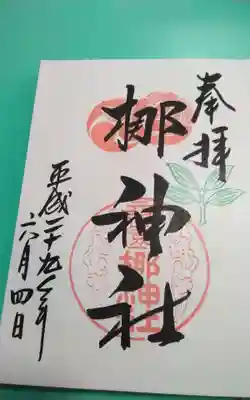 奉拝
梛神社
平成二十九年
六月四日
梛神社